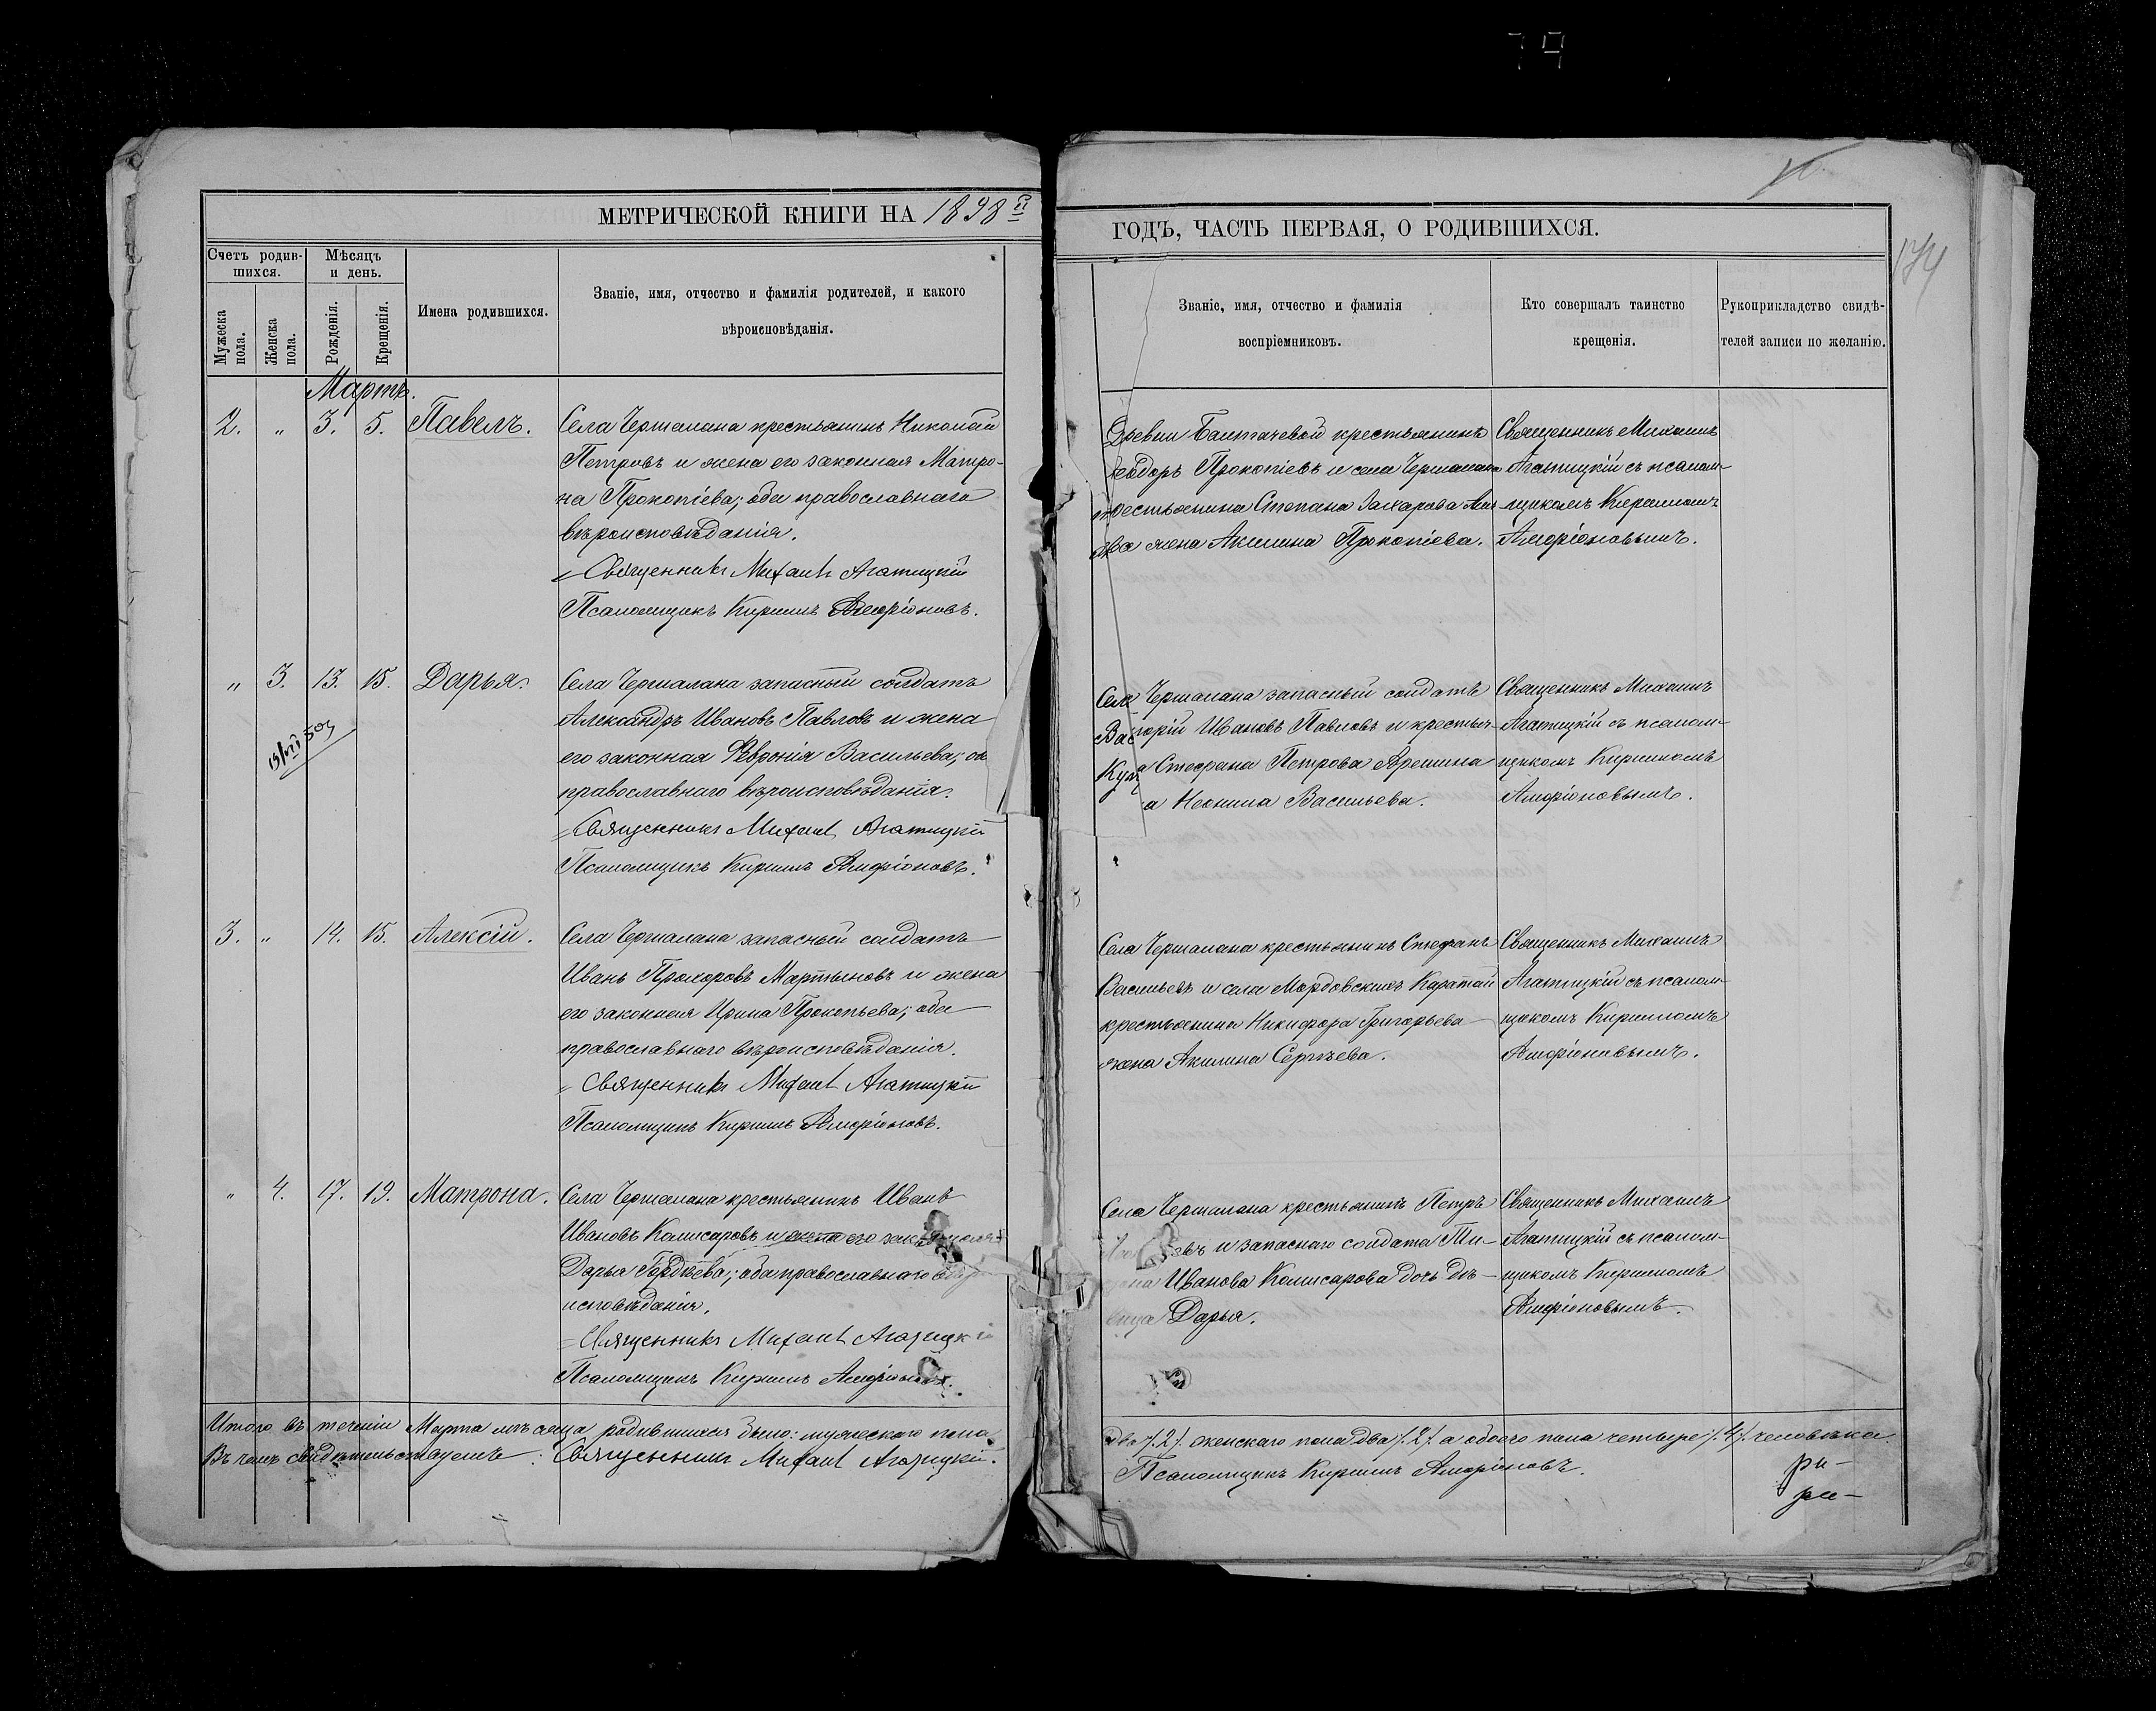 МЕТРИЧЕСКОЙ КНИГИ НА 1898 й
Счетъ родив-
шихся.
Мѣсяцъ
и день.
Мужеска
пола.
Женска
пола.
Рожденія.
Крещенія.
Имена родившихся.
Званіе, имя, отчество и фамилія родителей, и какого
вѣроисповѣданія.
Мартъ.
2. " 3. 5. Павелъ.
Села Чершалана крестьянинъ Николай
Петровъ и жена его законная Матро-
на Прокопіева; оба православнаго
вѣроисповѣданія.
Священникъ Михаилъ Агатицкій
Псаломщикъ Кириллъ Амфіоновъ.
" 3. 13. 15. Дарья.
Села Чершалана запасный солдатъ
Александръ Ивановъ Павловъ и жена
его законная Февронія Васильева;
православнаго вѣроисповѣданія.
Священникъ Михаилъ Агатицкій
Псаломщикъ Кириллъ Амфіоновъ.
3. " 14. 15. Алексій.
Села Чершалана запасный солдатъ
Иванъ Прохоровъ Мартыновъ и жена
его законная Ирина Прокопьева; оба
православнаго вѣроисповѣданія.
Священникъ Михаилъ Агатицкій
Псаломщикъ Кириллъ Амфіоновъ.
" 4. 17. 19. Матрона.
Села Чершалана крестьянинъ Иванъ
Ивановъ Комисаровъ и жена его законная
Дарья Гордѣева; оба православнаго вѣро
исповѣданія.
Священникъ Михаилъ Агатицкій
Псаломщикъ Кириллъ Амфіоновъ.
Итого въ теченіи Марта мѣсяца родившихся было: мужескаго пола
Въ чемъ свидѣтельствуемъ: Священникъ Михаилъ Агатицкій.
ГОДЪ, ЧАСТЬ ПЕРВАЯ, О РОДИВШИХСЯ.
174
Званіе, имя, отчество и фамилія
воспріемниковъ.
Кто совершалъ таинство
крещенія.
Рукоприкладство свидѣ-
телей записи по желанію.
Древни Баитачевой крестьянинъ
Ѳеодоръ Прокопіевъ и села Чершалана
крестьянина Степана Захарова
жена Акилина Прокопіева.
Священникъ Михаилъ
Агатицкій съ псалом-
щикомъ Кирилломъ
Амфіоновымъ.
Села Чершалана запасный солдатъ
Григорій Ивановъ Павловъ и крестьян-
Стефана Петрова Еремина
Неонила Васильева.
Священникъ Михаилъ
Агатицкій съ псалом-
щикомъ Кирилломъ
Амфіоновымъ.
Села Чершалана крестьянинъ Стефанъ
Васильевъ и села Мордовскихъ Каратай
крестьянина Никифора Григорьева
жена Акилина Сергѣева.
Священникъ Михаилъ
Агатицкій съ псалом-
щикомъ Кирилломъ
Амфіоновымъ.
Села Чершалана крестьянинъ Петръ
и запаснаго солдата
Иванова Комисарова дочь дѣ-
вица Дарья.
Священникъ Михаилъ
Агатицкій съ псалом-
щикомъ Кирилломъ
Амфіоновымъ.
два /.2/. женскаго пола два /.2/. а обоего пола четыре /.4/. человѣка.
Псаломщикъ Кириллъ Амфіоновъ.